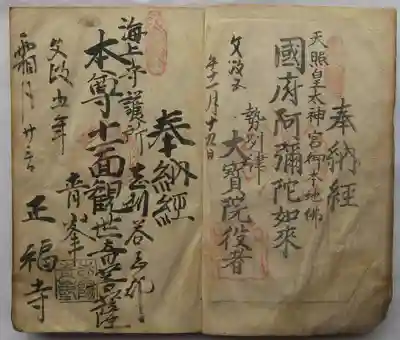 奉納經
天照皇太神宮御本地佛
國府阿彌陀如來
勢州津
大寶院役者
文政五
年十一月十九日
奉納經
志州答志郡
海上守護所
本尊十一面觀世音菩薩
青峯
正福寺
文政五年
霜月廿